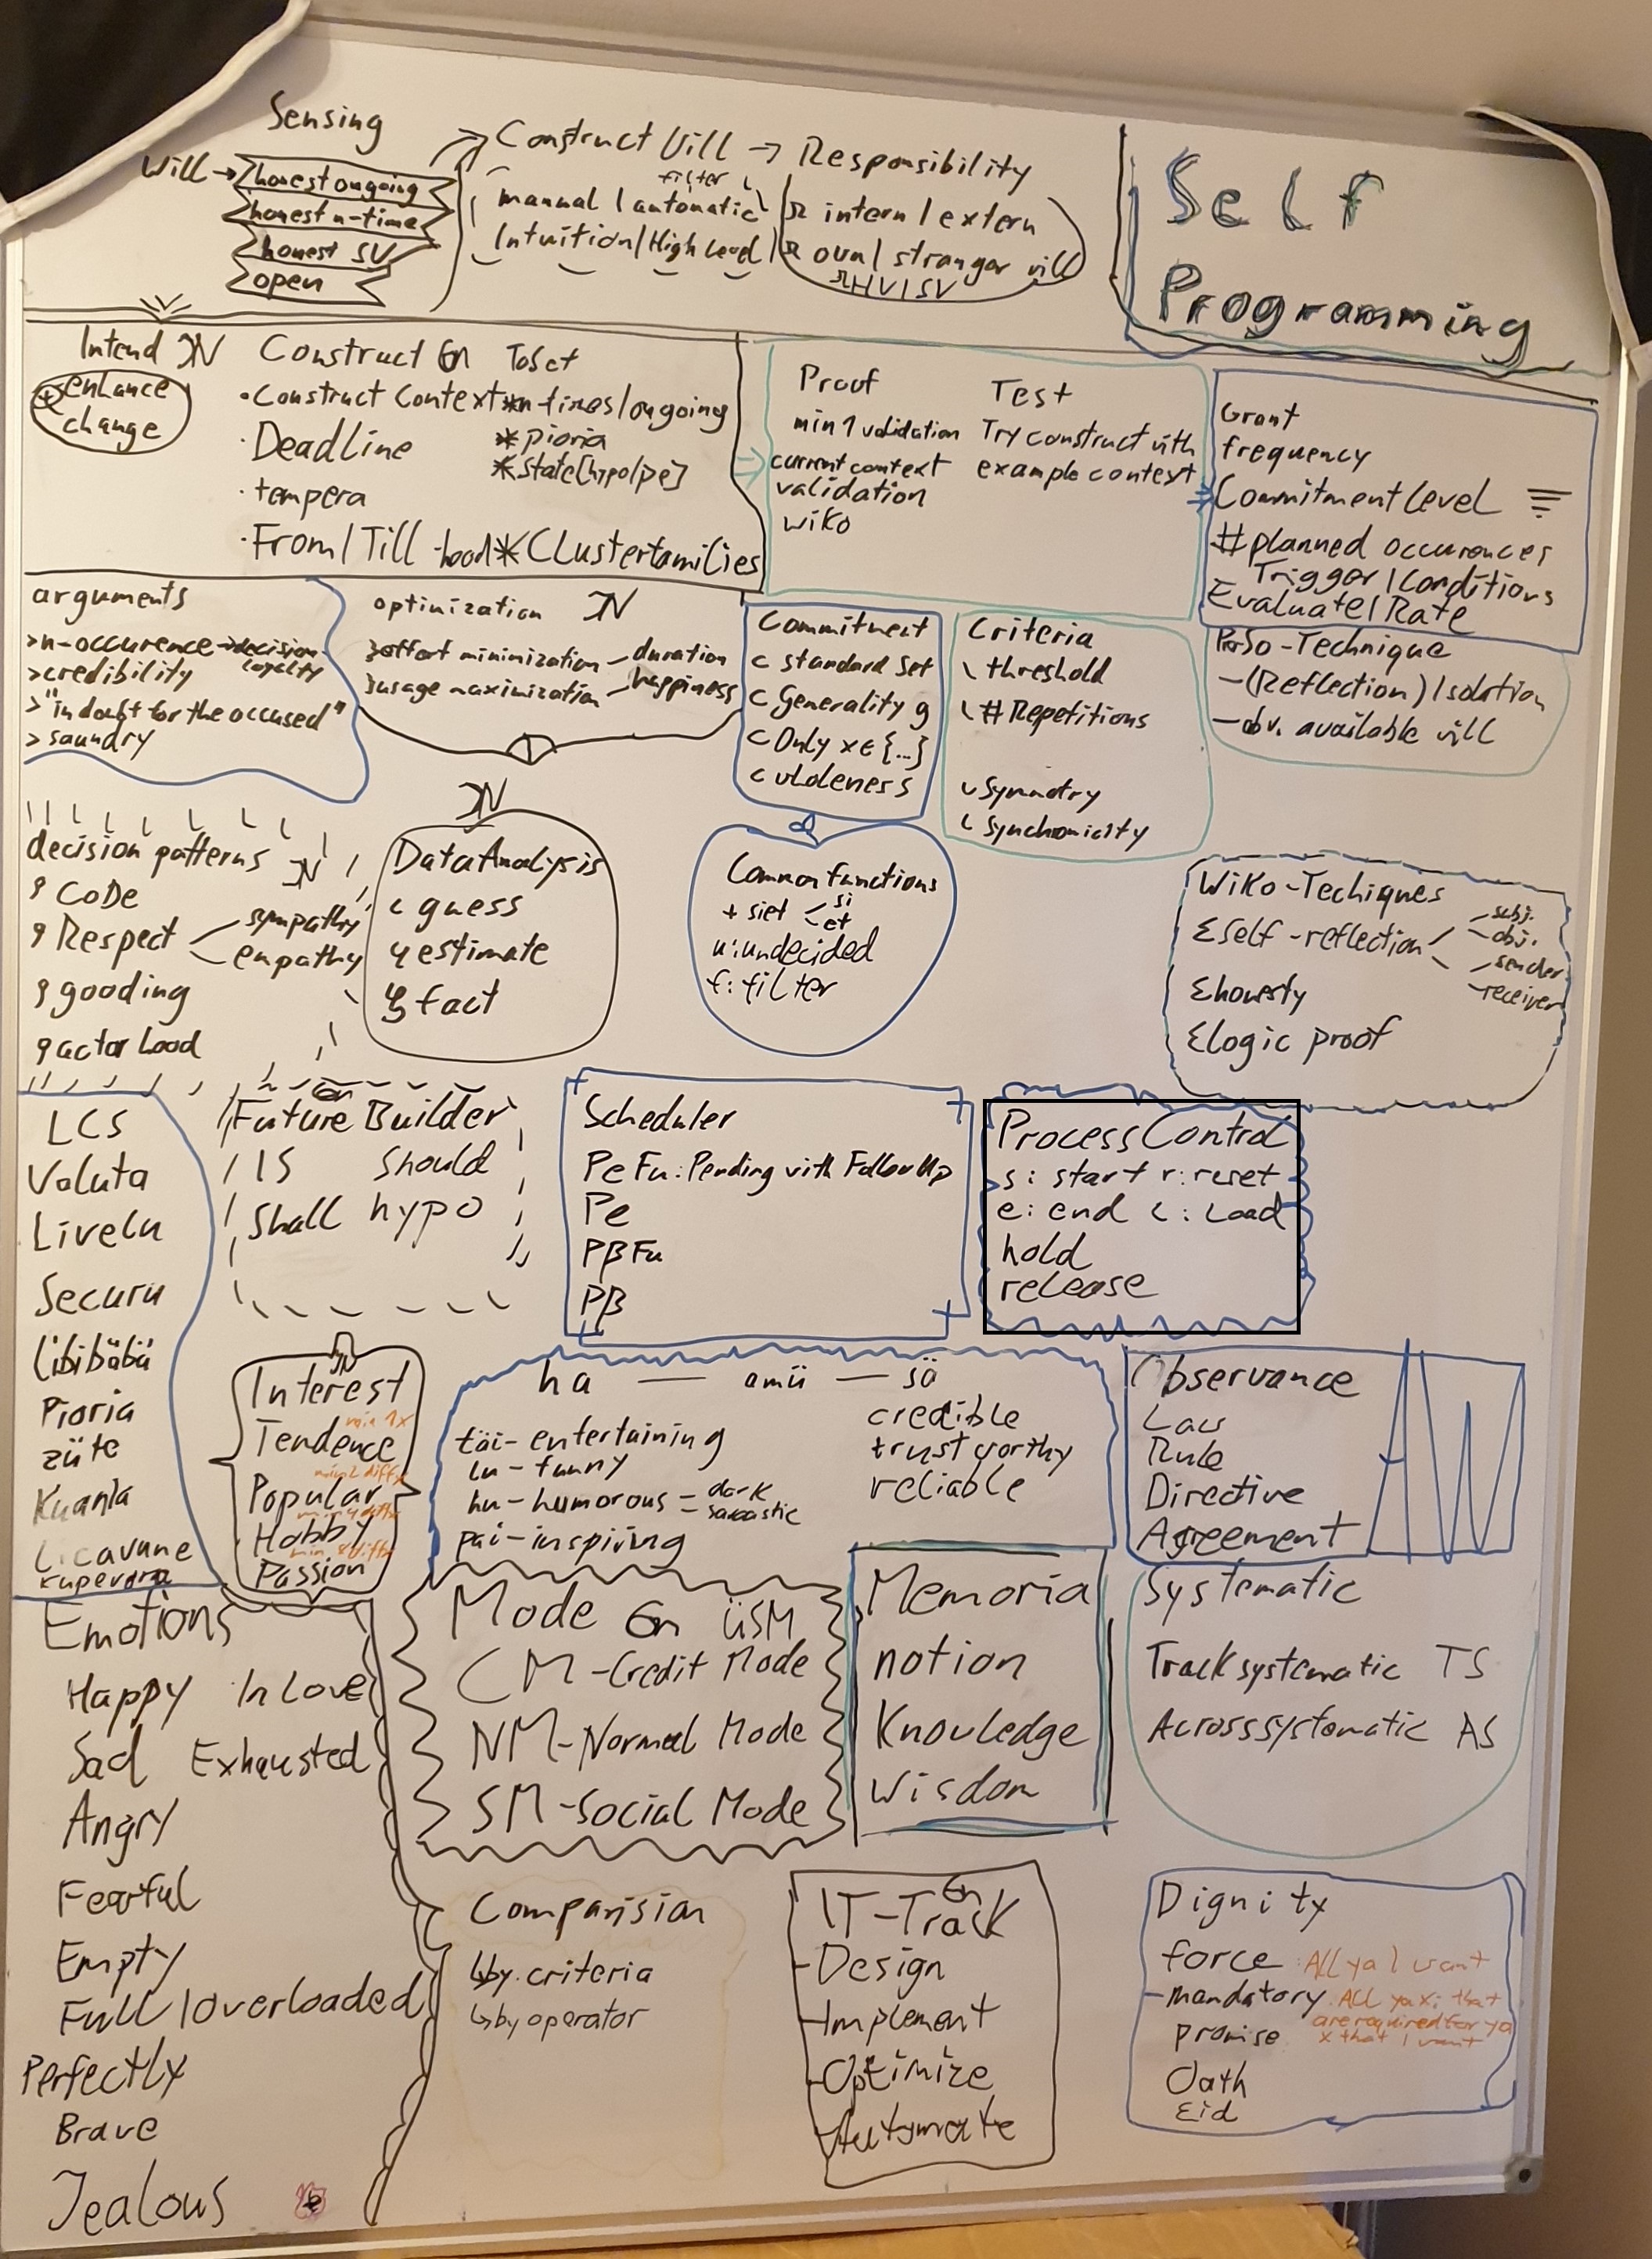 Self
Programming
Sensing
Will → honest ongoing
honest n-time
honest SV
open
Construct Vill → Responsibility
filter
manual / automatic
Intuition / High Load
intern / extern
own / stranger vill
HV / SV
Intend
enhance
change
Construct Gn ToSet
• Construct Context
· Deadline
· tempera
· From / Till
* n-times / ongoing
* pioria
* state [hypo/pe]
* Clusterfamilies
Proof
min 1 validation
current context
validation
wiko
Test
Try construct with
example context
Grant
frequency
Commitment level
# planned occurences
Trigger / Conditions
Evaluate / Rate
arguments
> n-occurence → decision
loyalty
> credibility
> "in doubt for the accused"
> saundry
optimization
effort minimization – duration
usage maximization – happiness
Commitment
c standard set
c Generality g
c Only x ∈ {...}
Criteria
threshold
# Repetitions
Symmetry
Synchronicity
-Technique
– (Reflection) / solution
– obv. available vill
decision patterns
CoDe
Respect
sympathy
empathy
gooding
actor Load
Data Analysis
guess
estimate
fact
Common functions
+ siet < si
et
u: undecided
f: filter
Wiko-Techiques
Σ self-reflection
subj.
obj.
sender
receiver
Σ honesty
Σ logic proof
LCS
Valuta
Liveln
Securu
Libibäbü
Pioria
züte
Kuanla
Licavune
Kupevara
Future Builder
IS should
Shall hypo
Scheduler
PeFu: Pending with Follow Up
Pe
PβFu
Pβ
Process Control
s: start r: reset
e: end L: Load
hold
release
Interest
Tendence
min 1x
Popular
Hobby
Passion
ha — amü — sö
täi- entertaining
lu- funny
hu- humorous = dark
sarcastic
pai- inspiring
credible
trustworthy
reliable
Observance
Law
Rule
Directive
Agreement
Emotions
Happy In Love
Sad Exhausted
Angry
Fearful
Empty
Full / Overloaded
Perfectly
Brave
Jealous
Mode Gn ÜSM
CM - Credit Mode
NM - Normal Mode
SM - Social Mode
Memoria
notion
Knowledge
Wisdom
Systematic
Track systematic TS
Across systematic AS
Comparision
↳ by criteria
↳ by operator
Gn
IT-Track
- Design
- Implement
- Optimize
- Automate
Dignity
force : All ya I want
- mandatory : ALL ya xi that
are required for ya
x that I want
promise
Oath
Eid